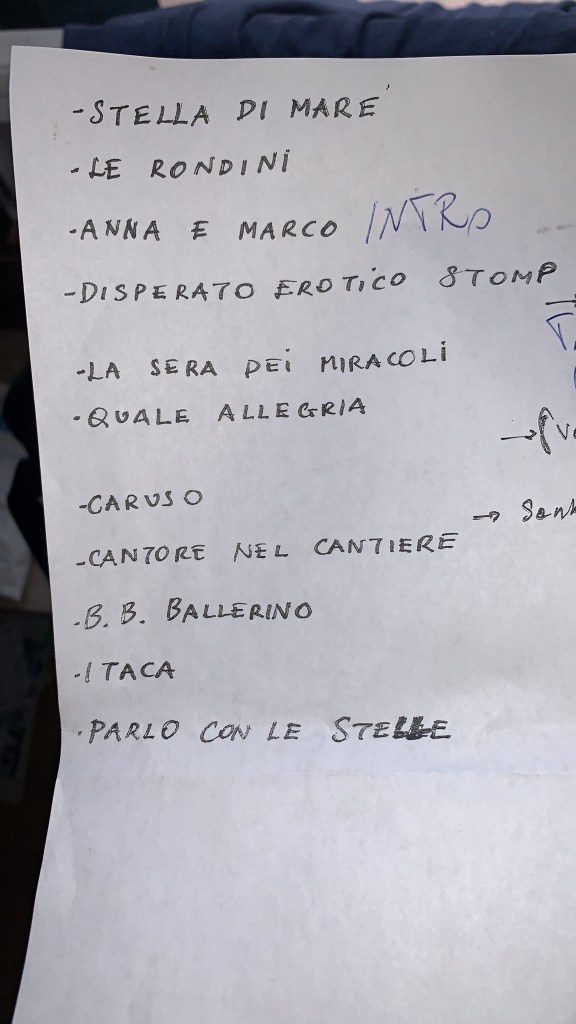 -STELLA DI MARE'
-LE RONDINI
-ANNA E MARCO INTRO
-DISPERATO EROTICO STOMP →
-LA SERA DEI MIRACOLI
-QUALE ALLEGRIA
→
-CARUSO
→
-CANTORE NEL CANTIERE
-B.B. BALLERINO
-ITACA
-PARLO CON LE STELLE